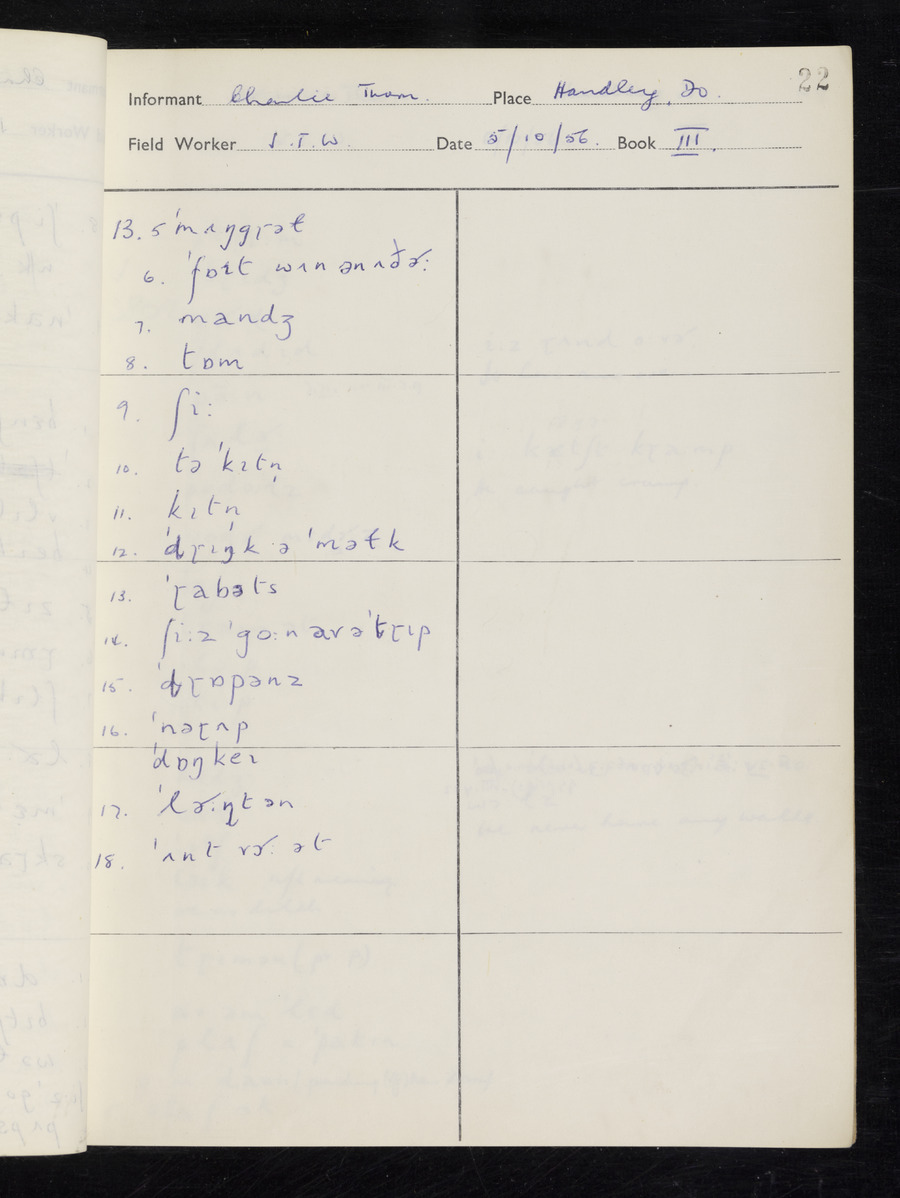 22
Informant Charlie Thom. Place Handley, Do.
Field Worker J.T.W. Date 5/10/56. Book III.
13. 5 ˈmʌŋgɽəɫ
6. ˈfɒɪt wʌn ənˈʌðə˞ː
7. mandʒ
8. tɒm
9. ʃiː
10. tə ˈkɪtn̩
11. kɪtn̩
12. ˈdɽɪŋk ə ˈməɫk
13. ˈɽabəts
14. ʃiːz ˈgoːn avəˈtɽɪp
15. ˈdɽɒpənz
16. ˈnəɽʌp
ˈdɒŋkeɪ
17. ˈlə˞ːɳtən
18. ˈʌnt və˞ː ət